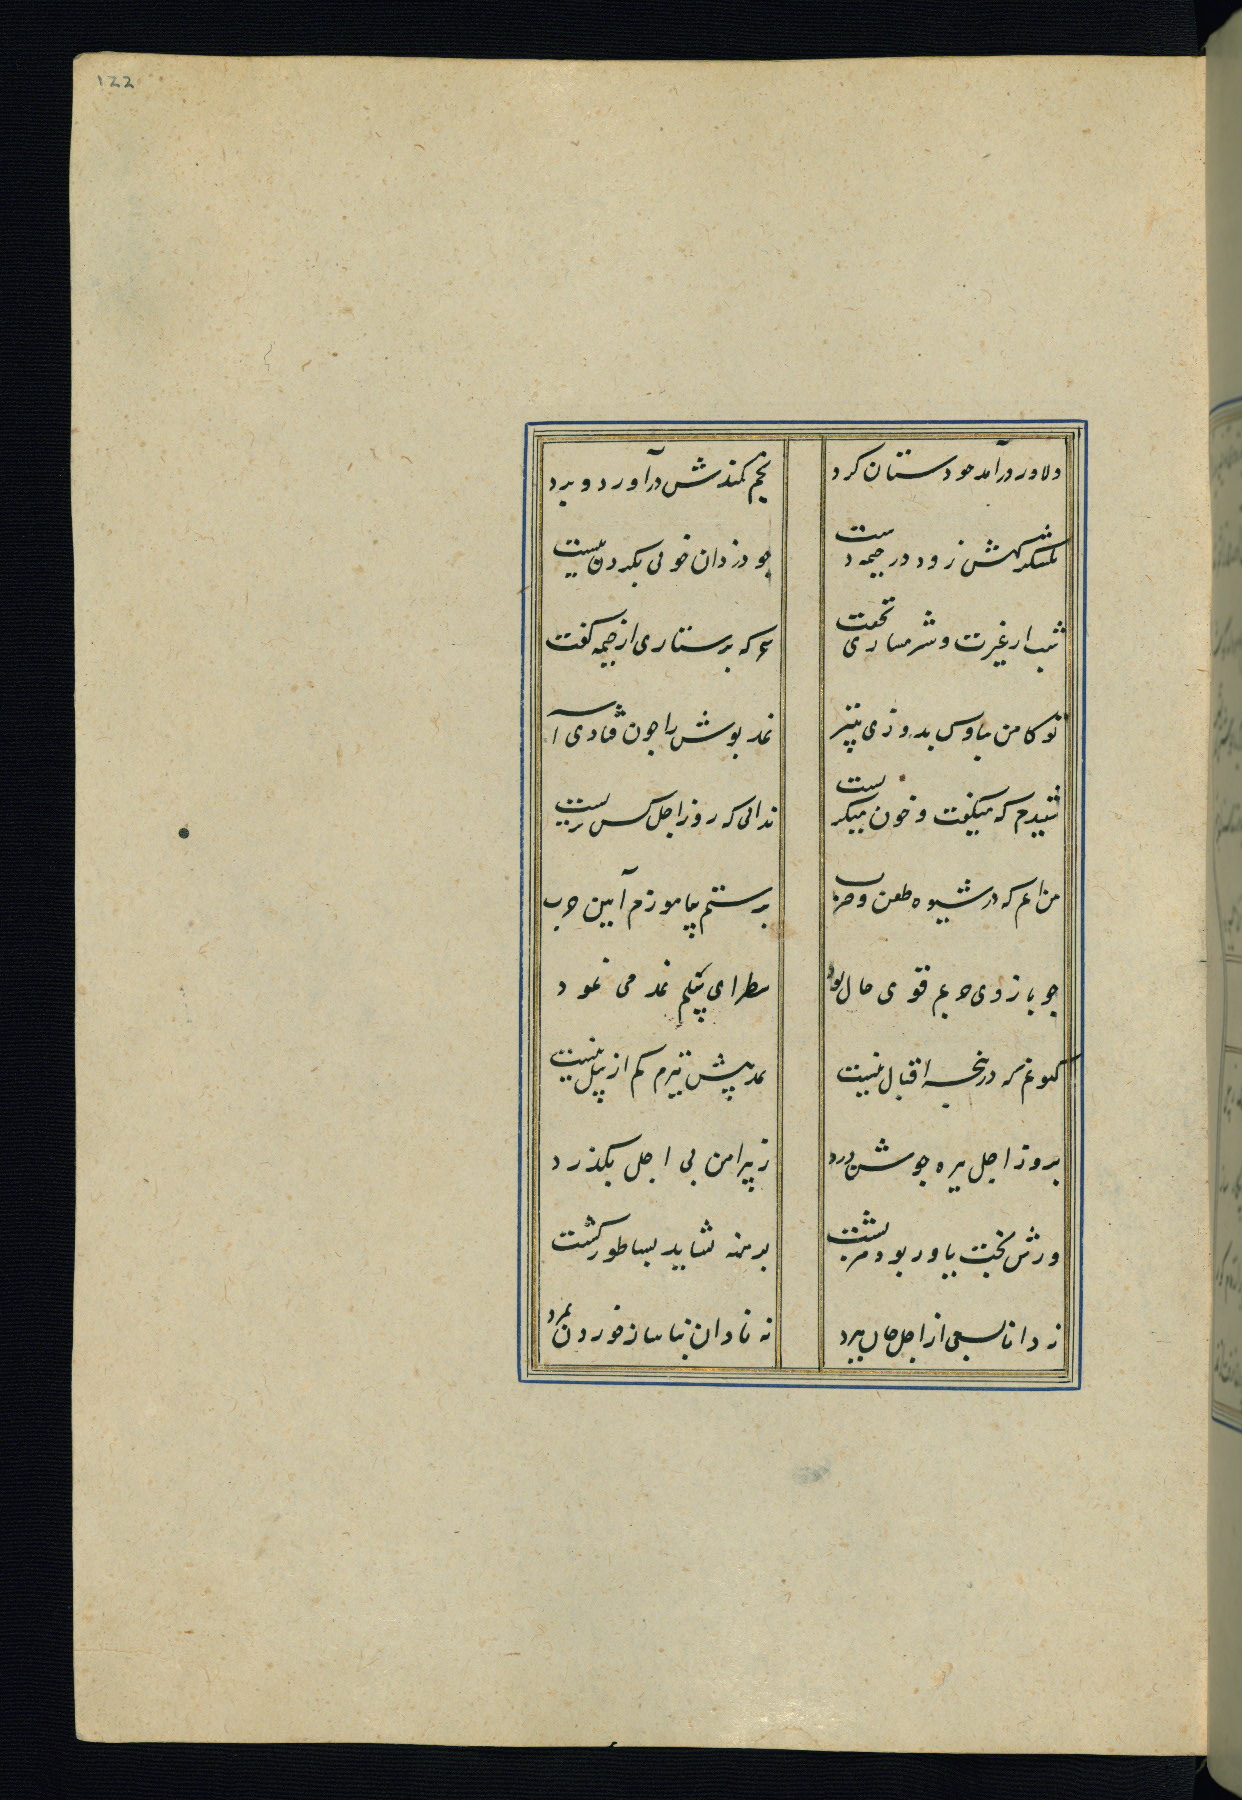 ۱۲۲
دلاور درآمد چو دستان کرد
بخم کمندش درآورد و ببرد
بلشکرگهش زود در خیمه دست
چو دزدان خونی بگردن ببست
شب از غیرت و شرمساری نخفت
سحرگه پرستاری از خیمه گفت
تو کاهن بناوک بدوزی و تیر
نمد پوش را چون فتادی اسیر
شنیدم که میگفت و خون میگریست
ندانی که روز اجل کس نزیست
من آنم که در شیوه طعن و ضرب
برستم بیاموزم آیین حرب
چو بازوی بختم قوی حال بود
سطبرای پیلم نمد می نمود
کنونم که در پنجه اقبال نیست
نمد پیش تیرم کم از پیل نیست
بروز اجل نیزه جوشن درد
ز پیراهن بی اجل نگذرد
ورش بخت یاور بود دهر پشت
برهنه نشاید بساطور کشت
نه دانا بسعی از اجل جان ببرد
نه نادان بناساز خوردن بمرد